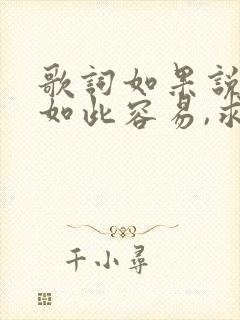 歌詞如果說
如此容易,求
千小尋